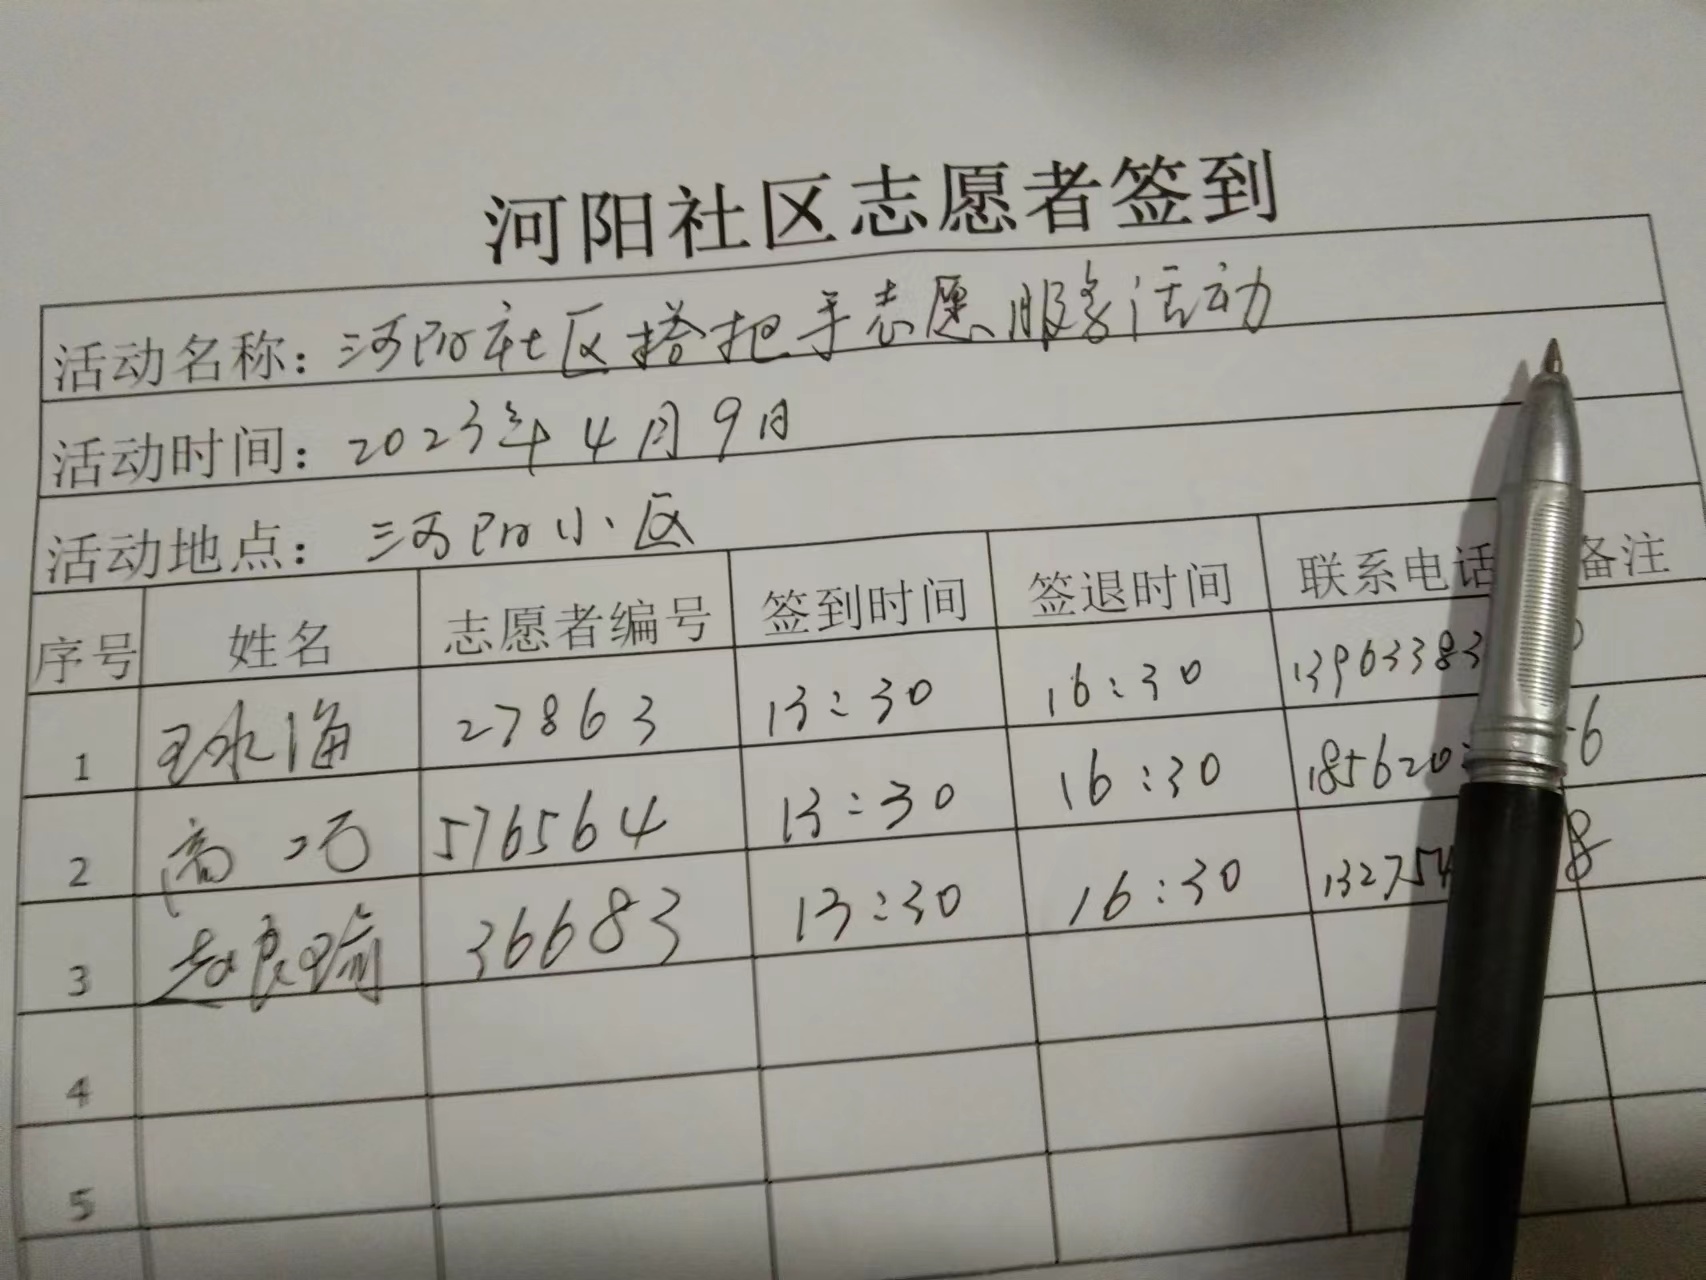 河阳社区志愿者签到
活动名称：河阳社区搭把手志愿服务活动
活动时间：2023年4月9日
活动地点：河阳小区
序号 姓名 志愿者编号 签到时间 签退时间 联系电话 备注
1 王永海 27863 13:30 16:30 13963383
2 高巧 576564 13:30 16:30 185620 6
3 赵良瑜 36683 13:30 16:30 132754 8
4
5